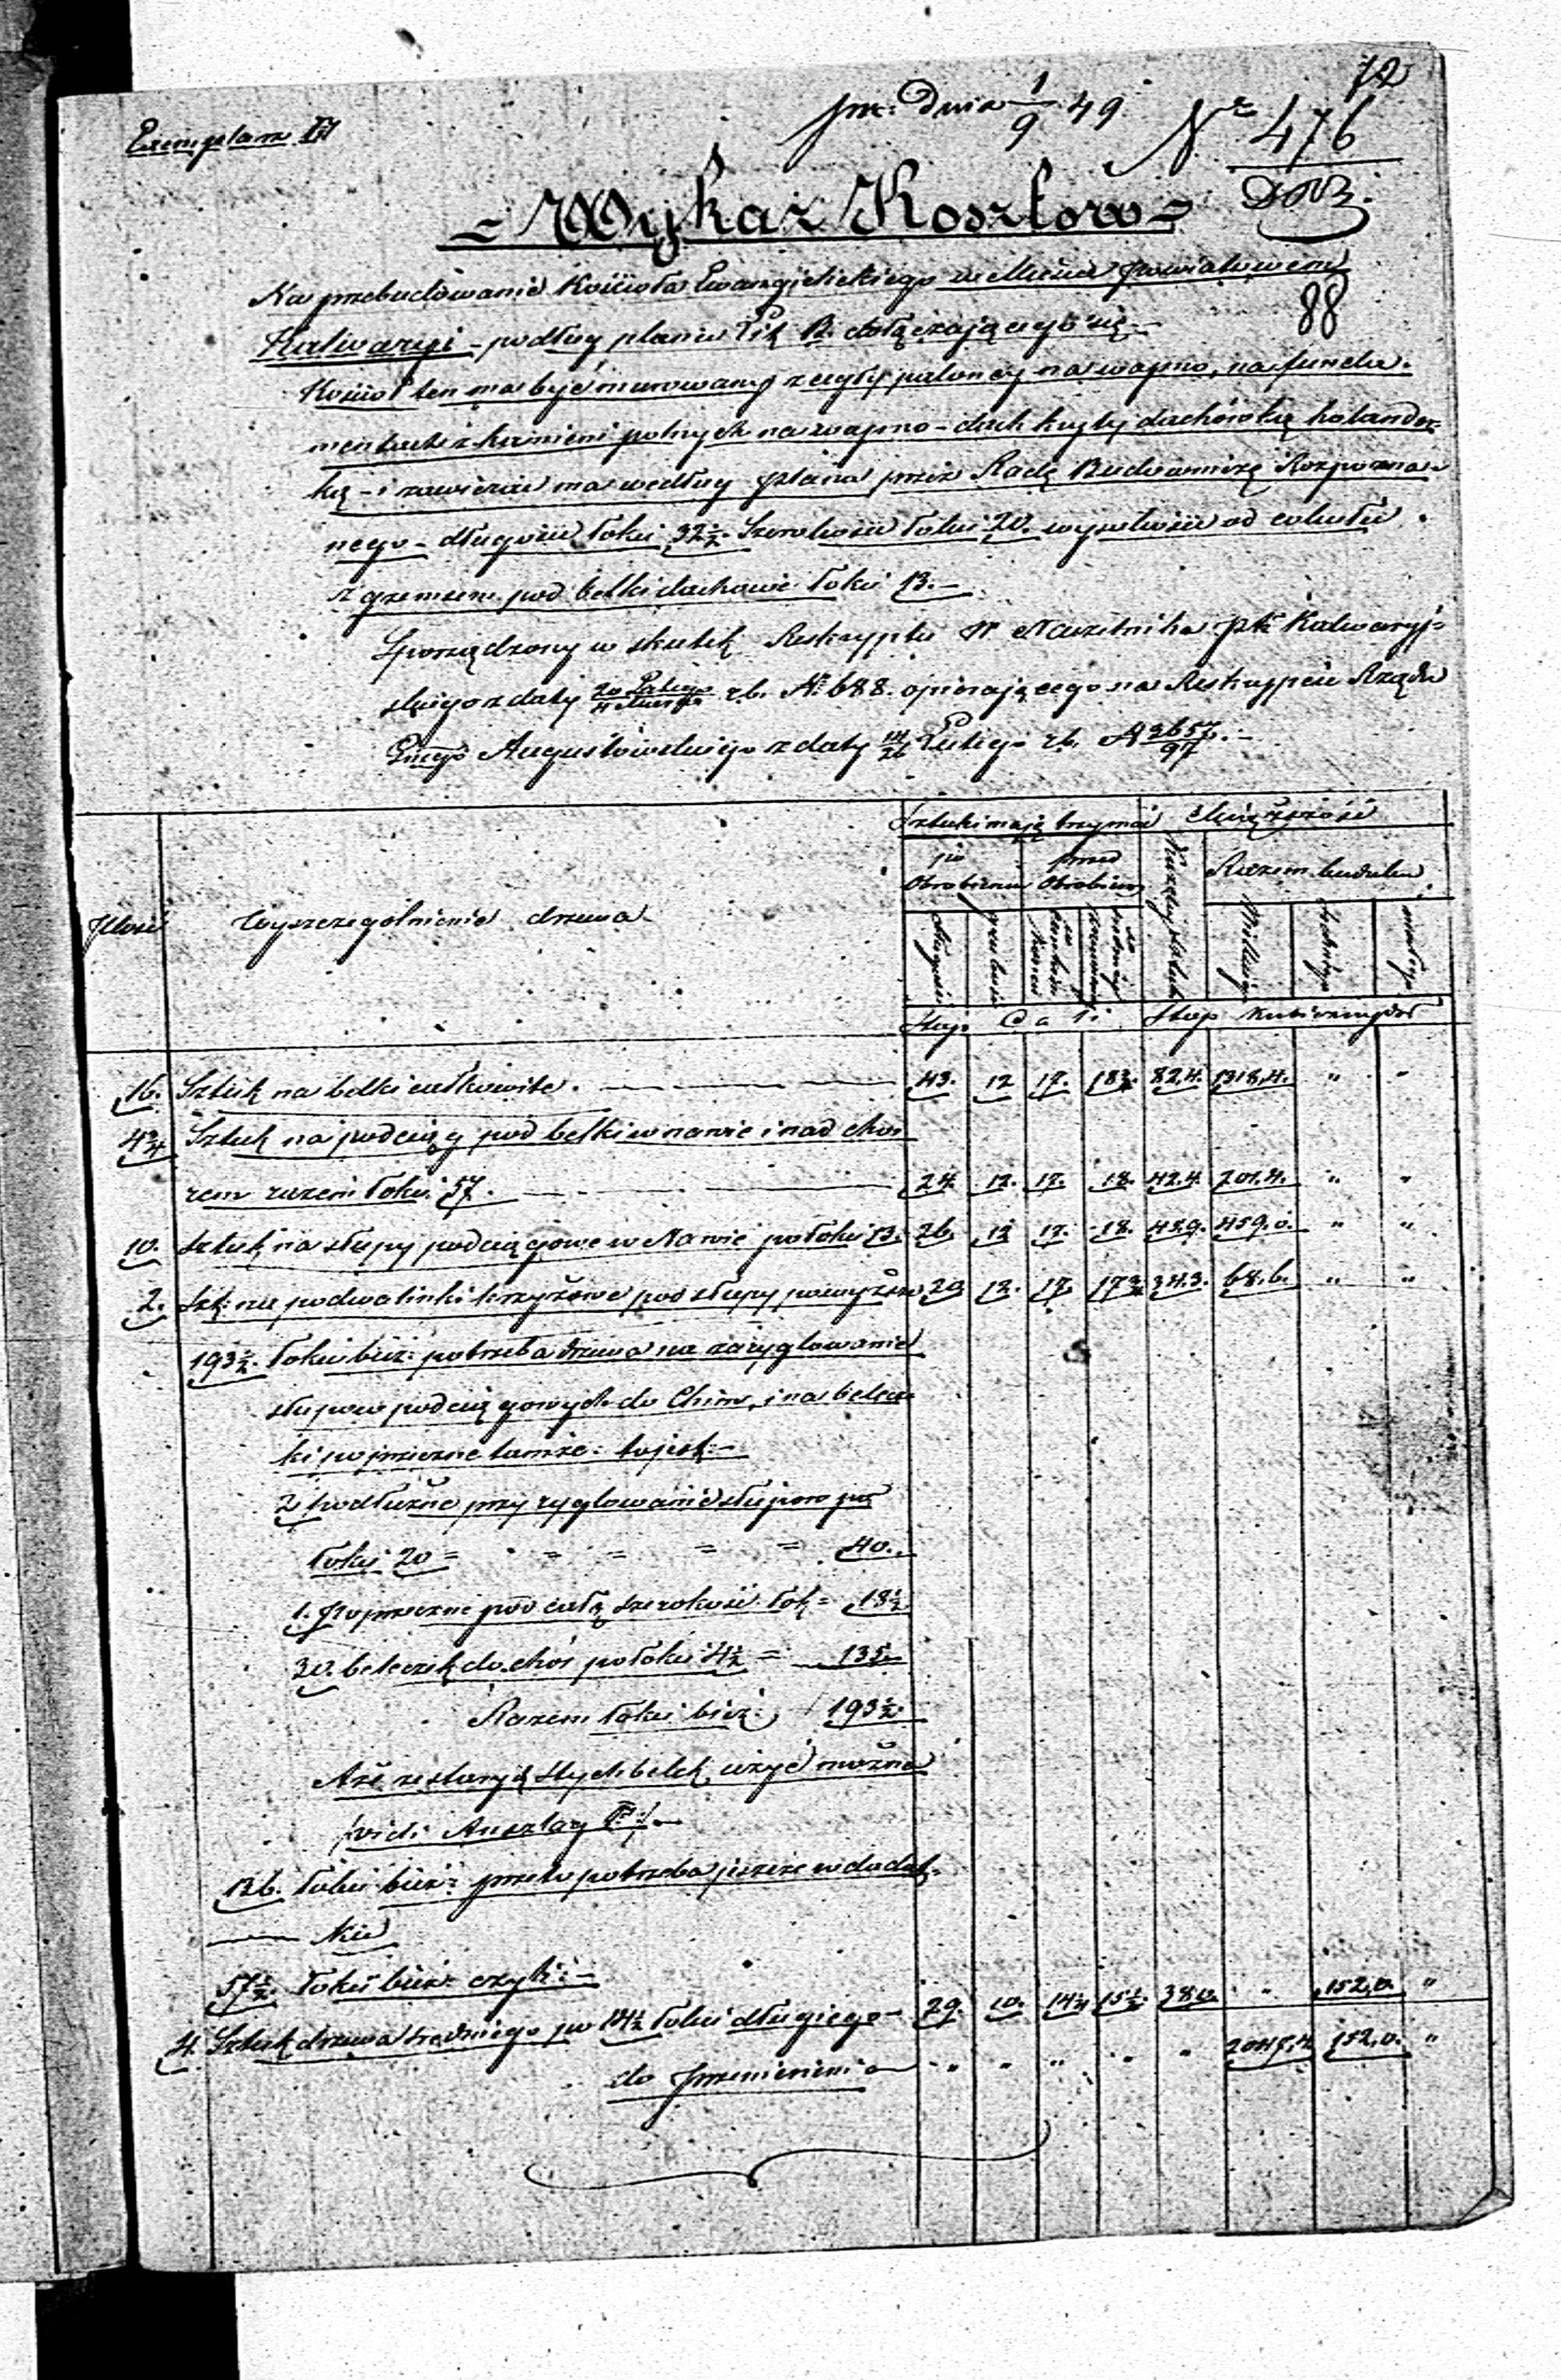 72
pr: Dnia 1/9 49
Exemplarz III
Nr 476
88
= Wykaz Kosztów =
Na przebudowanie Kościoła Ewangielickiego w Mieście powiatowem
Kalwaryi - podług planu B. dołączającego się -
Kościoł ten ma być murowany z cegły paloney na wapno, na funda-
mentach z kamieni polnych na wapno - dach kryty dachówką holender-
ką - i zawierać ma według planu przez Radę Budowniczą Rozpozna-
nego - długości łokci 32½. Szerokości łokci 20. wysokości od cokułu
z gzemsem pod belki dachowe łokci 13. -
Sporządzony w skutek Reskryptu W Naczelnika ptu Kalwaryj-
skiego z daty 20 Lutego / 4 Marca rb. Nr 688. opierającego na Reskrypcie Rządu
Gubgo Augustowskiego z daty 14/26 Lutego rb. N 3657/97. -
Ilość
Wyszczególnienie drzewa
Sztuki mają trzymać
Miąższość
po Obrobieniu
przed Obrobieniem
Każdej sztuki
Razem budulcu
długości
grubości
w cienkim końcu
Wielkiego
Średniego
małego
Stóp
Cali
Stóp Kubicznych
16. Sztuk na belki całkowite. 43. 12 17. 18¾. 82,4. 1318,4. " "
4¾ Sztuk na podciągi pod belki w nawie i nad cho-
rem razem łokci 57. 24 12. 17. 18. 42,4. 201,4. " "
10. Sztuk na słupy podciągowe w Nawie po łokci 13. 26. 12 17. 18. 45,9. 459,0. " "
2. Szt: na podwalinki krzyżowe pod słupy powyższe 20 12. 17 17¾ 34,3. 68,6. " "
193½. łokci bież: potrzeba drzewa na zaryglowanie
słupów podciągowych do Chóru, i na belecz-
ki poprzeczne tamże: to jest: -
2 podłużne przy ryglowanie słupów po
łokci 20 = = = = = 40.
1. poprzeczne pod całą szerokość łok = 18½
30. beleczek do chór po łokci 4½ = 135
Razem łokci bież: 193½.
A że ze starych belek użyć można
/vidi Anszlag
136. łokci bież: przeto potrzeba jeszcze w dodat-
ku
57½. łokci bież: czyli: -
4. Sztuk drzewa średniego po 14½ łokci długiego - 29. 10. 14¼ 15½. 38,0 " 152,0. "
do przeniesienia " " " " " 2047,4 152,0. "